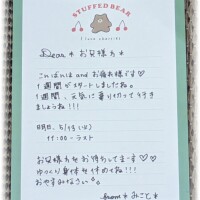 STUFFED BEAR
I love cherries
Dear * お父様 *
こんばんは and お疲れ様です♡♡
1週間がスタートしましたね。
1週間、元気に乗り切って行き
ましょうね!!!
明日、5/13(火)
11:00 - ラスト
お父様も お待ちしてまーす♡♡
ゆっくり身体を休めてね!!!
おやすみなさい。
from * みこと *